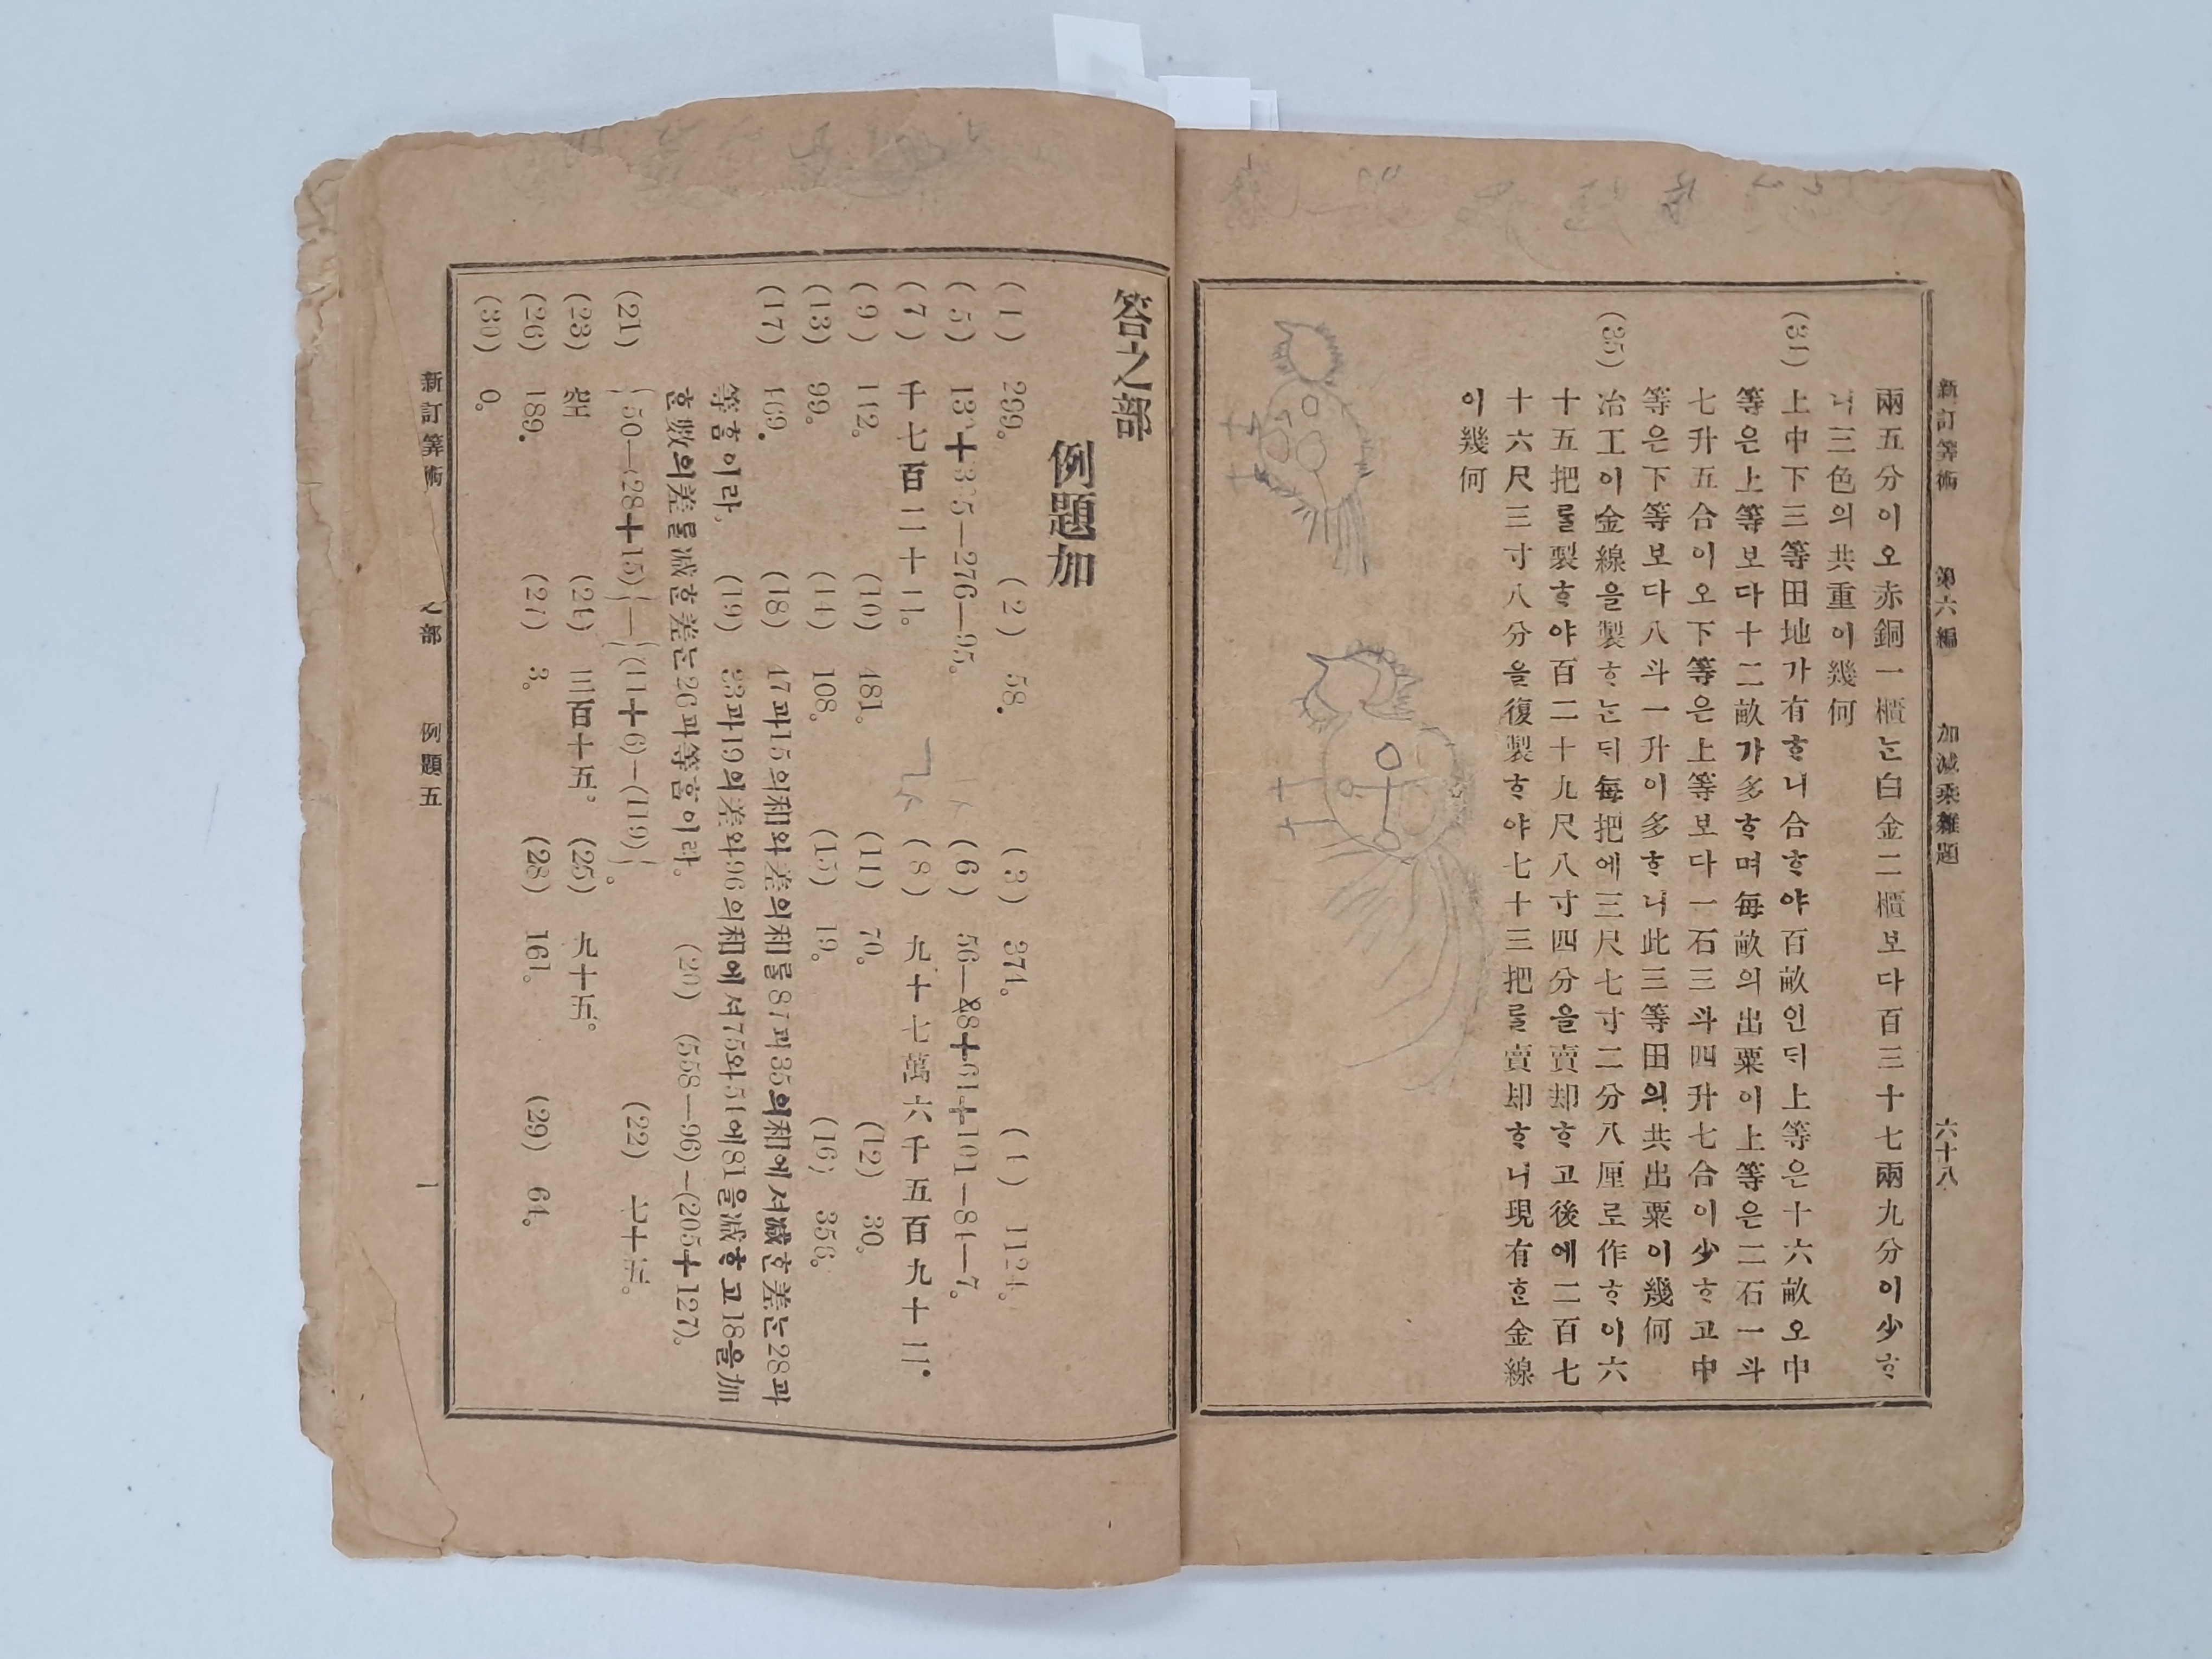 新訂筭術 第六編 加減乘雜題 六十八
兩五分이오赤銅一櫃는白金二櫃보다百三十七兩九分이少ᄒᆞ
니三色의共重이幾何
(34) 上中下三等田地가有ᄒᆞ니合ᄒᆞ야百畝인ᄃᆡ上等은十六畝오中
等은上等보다十二畝가多ᄒᆞ며每畝의出粟이上等은二石一斗
七升五合이오下等은上等보다一石三斗四升七合이少ᄒᆞ고中
等은下等보다八斗一升이多ᄒᆞ니此三等田의共出粟이幾何
(35) 冶工이金線을製ᄒᆞ는ᄃᆡ每把에三尺七寸二分八厘로作ᄒᆞ이六
十五把를製ᄒᆞ야百二十九尺八寸四分을賣却ᄒᆞ고後에二百七
十六尺三寸八分을復製ᄒᆞ야七十三把를賣却ᄒᆞ니現有ᄒᆞᆫ金線
이幾何
答之部
例題加
(1) 299。 (2) 58. (3) 371。 (4) 1124。
(5) 13+335—276—95。 (6) 56—28+61+101—84—7。
(7) 千七百二十二。 (8) 九十七萬六千五百九十二.
(9) 112。 (10) 481。 (11) 70。 (12) 30。
(13) 99。 (14) 108。 (15) 19。 (16) 356。
(17) 169. (18) 47과15의和와差의和를87과35의和에셔減ᄒᆞᆫ差는28과
等홈이라, (19) 33과19의差와96의和에셔75와51에81을減ᄒᆞ고18을加
ᄒᆞᆫ數의差를減ᄒᆞᆫ差는26과等홈이라. (20) (558—96)—(205+127)。
(21) {50—(28+15)}—{(11+6)—(119)}。 (22) 七十五。
(23) 空 (24) 三百十五, (25) 九十五。
(26) 189. (27) 3。 (28) 161。 (29) 64。
(30) 0。
新訂筭術 之部 例題五 一